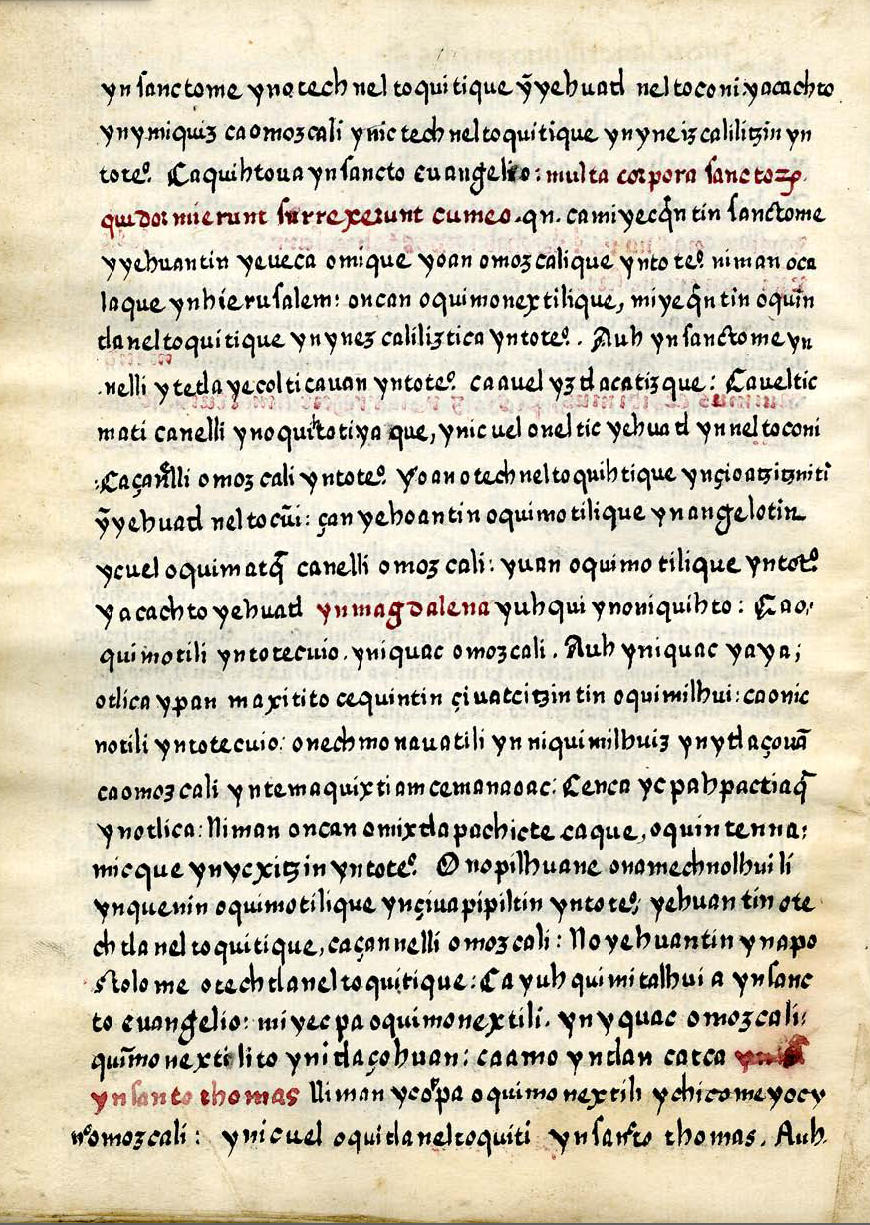 yn sanctome ynotech neltoquitique ỹyehuatl neltoconi.yacachto
ynymiquiz caomozcali ynic tech neltoquitique ynyneizcalilitzin yn
tote.º Caquihtoua yn sancto euangelio: multa corpora sanctoꝝ.
qui dormierunt surrexerunt cum eo. qn. camiyecq̃ntin sanctome
yyehuantin yeueca omique yoan omozcalique yntote.º niman oca
laque ynhierusalem: oncan oquimonextilique, miyeq̃ntin oquin
tlaneltoquitique ynynezcaliliztica yntote.º. Auh ynsanctome yn
nelli ytetlayecolticauan yntote.º caauel yztlacatizque: Caueltic
mati canelli ynoquitotiya que, ynic uel oneltic yehuatl ynneltoconi
Caçanelli omozcali yntote.º Yoan otech neltoquihtique ynçioatzitzniti
ỹyehuatl neltocũi: çan yehoantin oquimotilique ynangelotin
ycuel oquimatq̃ canelli omozcali: yuan oquimotilique yntote.º
yacachto yehuatl ynmagdalena yuhqui ynoniquihto: Cao,
quimotili yntotecuio. yniquac omozcali. Auh yniquac yaya,
otlica ypan maxitito cequintin çiuatcitzintin oquimilhui: caonic
notili yntotecuio: onechmonauatili yn niquimilhuiz ynytlaçouã
caomozcali yntemaquixtiamcemanaoac: Cenca yc pahpactiaq̃
ynotlica: Niman oncan omixtlapachicte caque, oquintenna:
micque ynycxitzin yntote.º O nopilhuane onamechnolhuili
ynquenin oquimotilique ynçiuapipiltin yntote.º, yehuantin ote
chtlaneltoquitique, caçannelli omozcali: No yehuantin ynapo
stolome otechtlaneltoquitique: Ca yuh quimitalhuia ynsanc
to euangelio: miyecpa oquimonextili. ynyquac omozcali:
quĩmonextilito ynitlaçohuan: caamo yntlan catca
ynsanto thomas Niman ycoppa oquimonextili ychicomeyocy
omozcali: ynicuel oquitlaneltoquiti ynsancto thomas. Auh